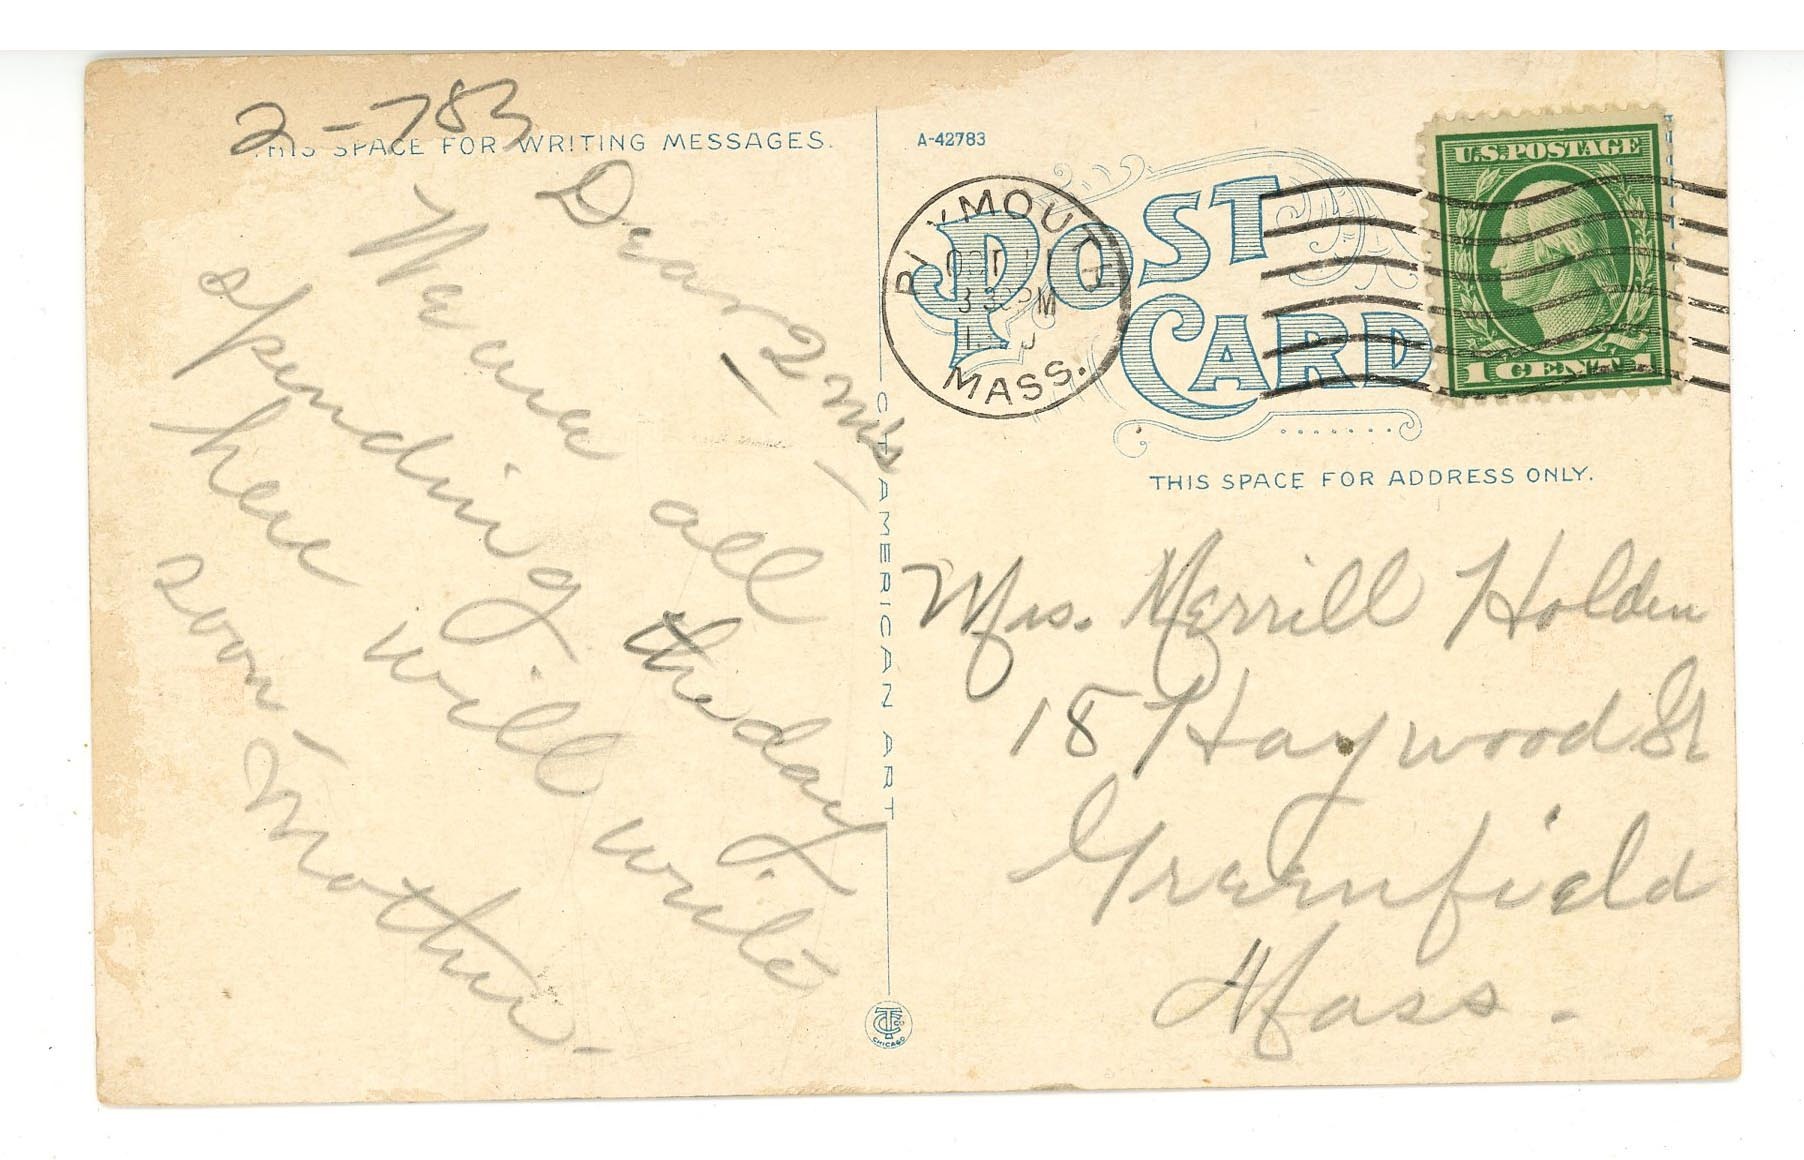 2-783
THIS SPACE FOR WRITING MESSAGES.
Dear 2 M's
We are all
spending the day
here will write
soon -
Mother.
C.T. AMERICAN ART
C.T.Co.
CHICAGO
A-42783
POST
CARD
PLYMOUTH
330PM
MASS.
U.S. POSTAGE
1 CENT 1
THIS SPACE FOR ADDRESS ONLY.
Mrs. Merrill Holden
18 Haywood St
Greenfield
Mass.